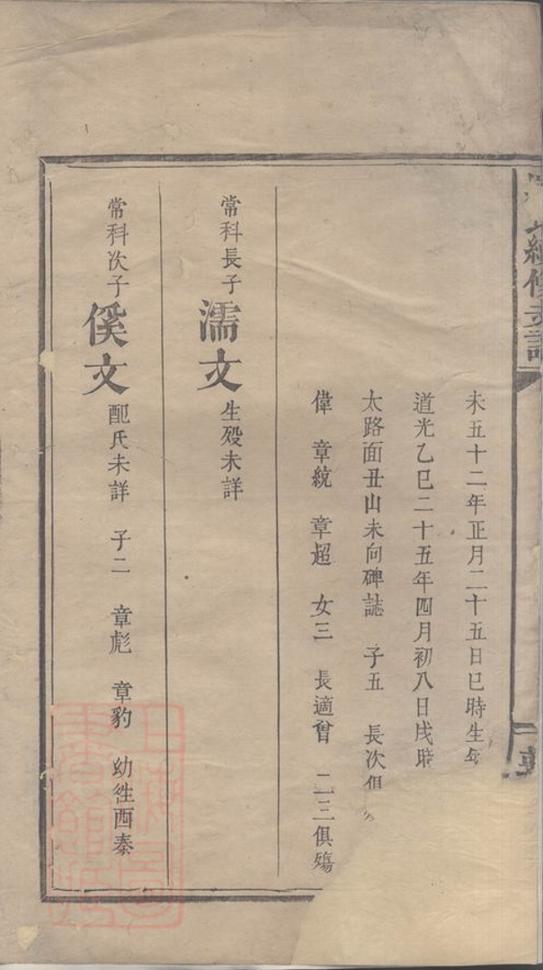 續修支譜
未五十二年正月二十五日巳時生
道光乙巳二十五年四月初八日戌時
太路面丑山未向碑誌 子五 長次俱
偉 章統 章超 女三 長適曾 二三俱殤
常科長子 濡文 生殁未詳
常科次子 傒文 配氏未詳 子二 章彪 章豹 幼徃西秦